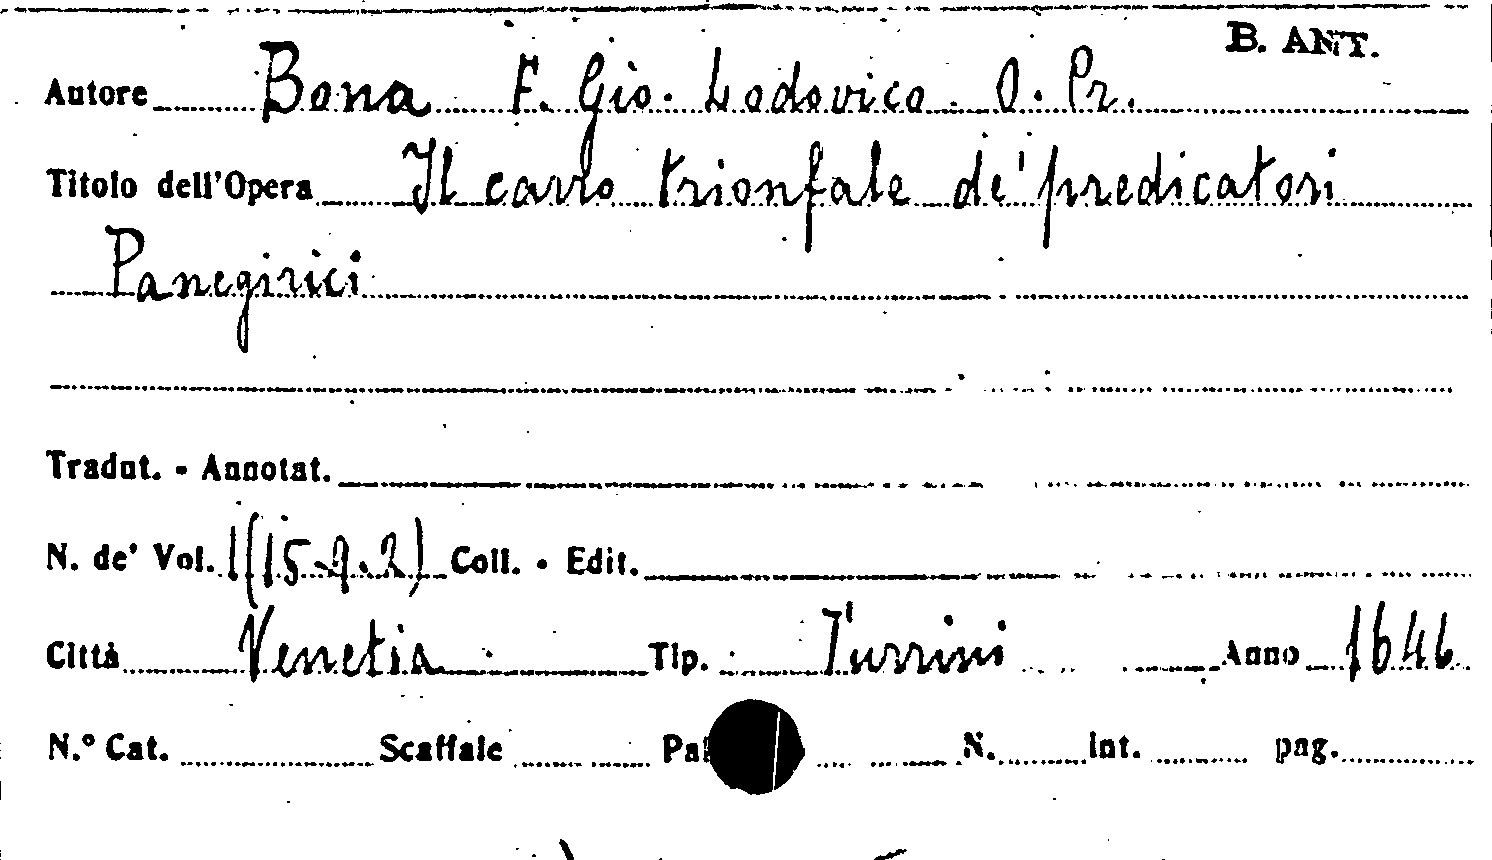 B. ANT.
Autore Bona F. Gio. Lodovico. O. Pr.
Titolo dell'Opera Il carro trionfale de' predicatori
Panegirici
Tradut. - Annotat.
N. de' Vol. 1 (15.9.2) Coll. - Edit.
Città Venetia Tip. Turrini Anno 1646
N.º Cat. Scaffale Pal N. Int. pag.